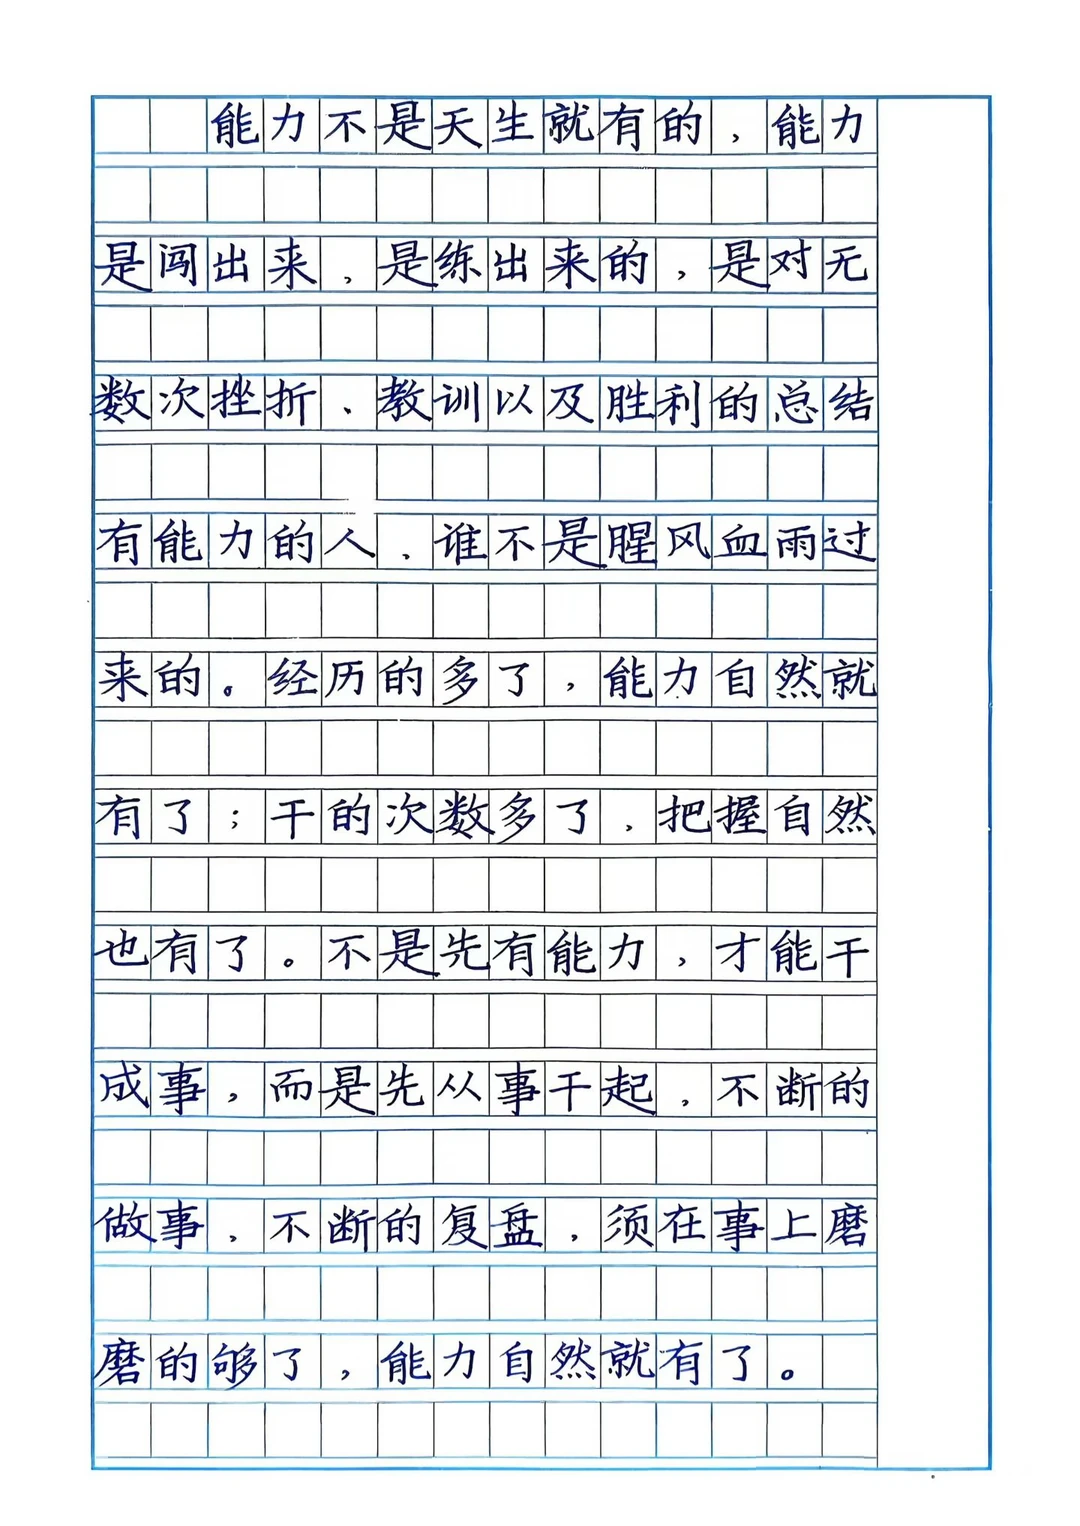 能力不是天生就有的，能力
是闯出来，是练出来的，是对无
数次挫折、教训以及胜利的总结
有能力的人，谁不是腥风血雨过
来的。经历的多了，能力自然就
有了；干的次数多了，把握自然
也有了。不是先有能力，才能干
成事，而是先从事干起，不断的
做事，不断的复盘，须在事上磨
磨的够了，能力自然就有了。